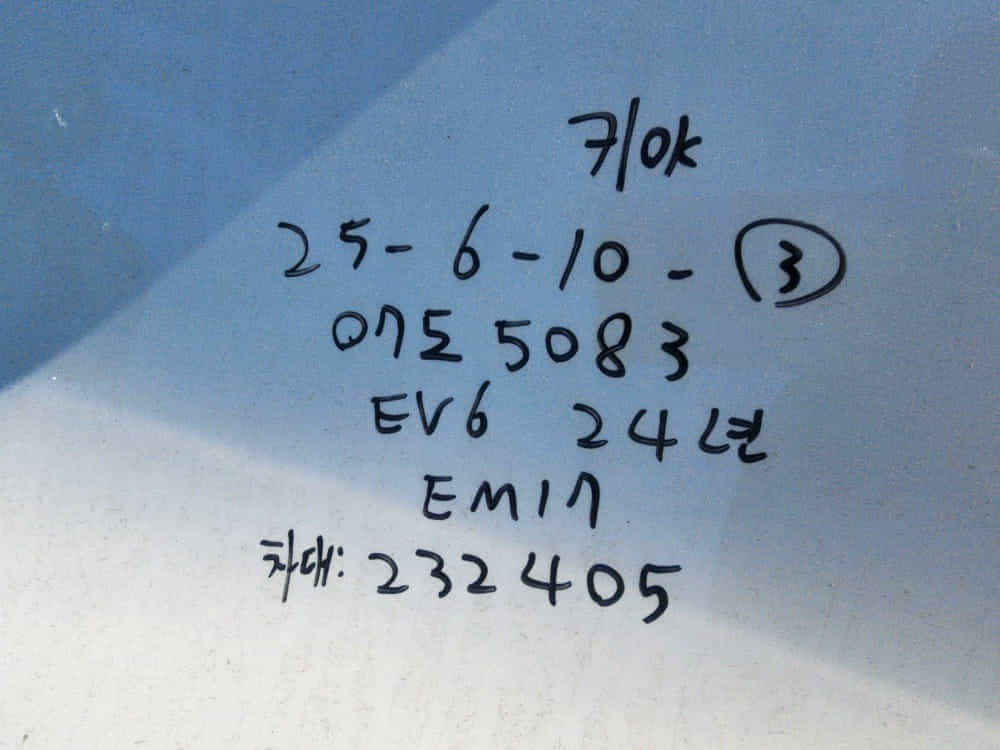 키/OK
25-6-10-③
07도 5083
EV6 24년
EM17
차대: 232405